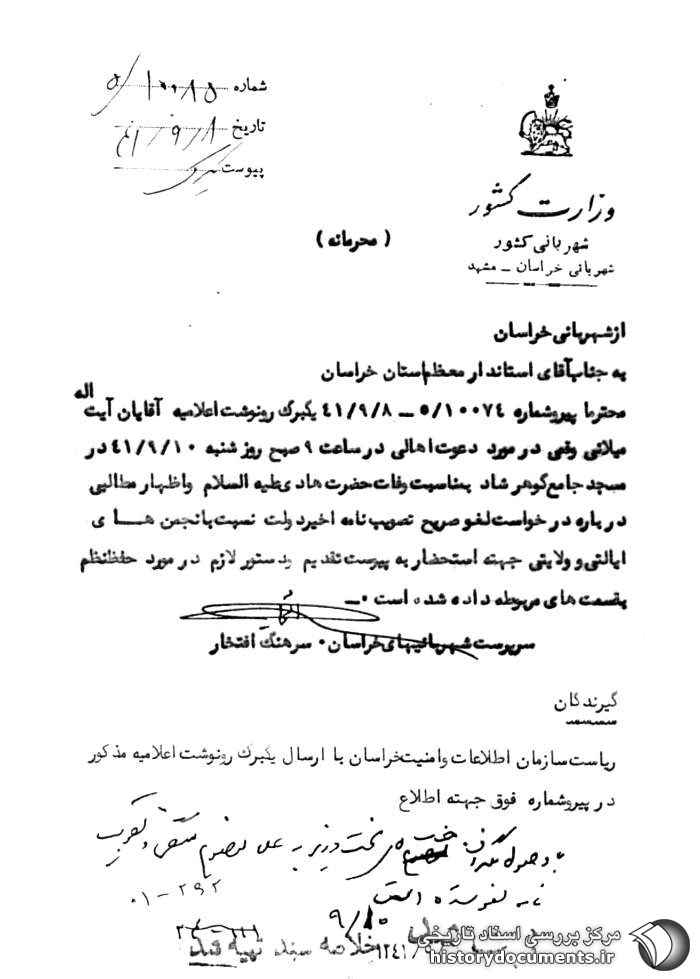 شماره ۵/۱۰۰۸۵
تاریخ ۴۱/۹/۸
پیوست
وزارت کشور
شهربانی کشور
شهربانی خراسان – مشهد
( محرمانه )
از شهربانی خراسان
به جناب آقای استاندار معظم استان خراسان
محترما پیرو شماره ۵/۱۰۰۷۴ – ۴۱/۹/۸ یکبرگ رونوشت اعلامیه آقایان آیت اله
میلانی و قمی در مورد دعوت اهالی در ساعت ۹ صبح روز شنبه ۴۱/۹/۱۰ در
مسجد جامع گوهر شاد بمناسبت وفات حضرت هادی علیه السلام و اظهار مطالبی
درباره درخواست لغو صریح تصویب نامه اخیر دولت نسبت بانجمن هــای
ایالتی و ولایتی جهته استحضار به پیوست تقدیم و دستور لازم در مورد حفظ نظم
بقسمت های مربوطه داده شده است ۰ــ
سرپرست شهربانیهای خراسان ۰ سرهنگ افتخار
گیرندگان
ریاست سازمان اطلاعات و امنیت خراسان با ارسال یکبرگ رونوشت اعلامیه مذکور
در پیرو شماره فوق جهته اطلاع
نخست وزیر به
۰۱-۲۹۲
است
۹/۱۰
خلاصه سند تهیه شد
مرکز بررسی اسناد تاریخی
historydocuments.ir